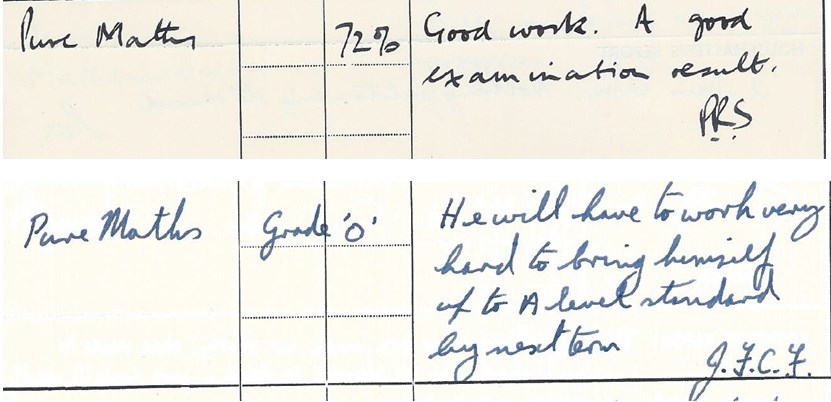 Pure Maths 72% Good work. A good
examination result.
PRS
Pure Maths Grade 'O' He will have to work very
hard to bring himself
up to A level standard
by next term
J.F.C.F.